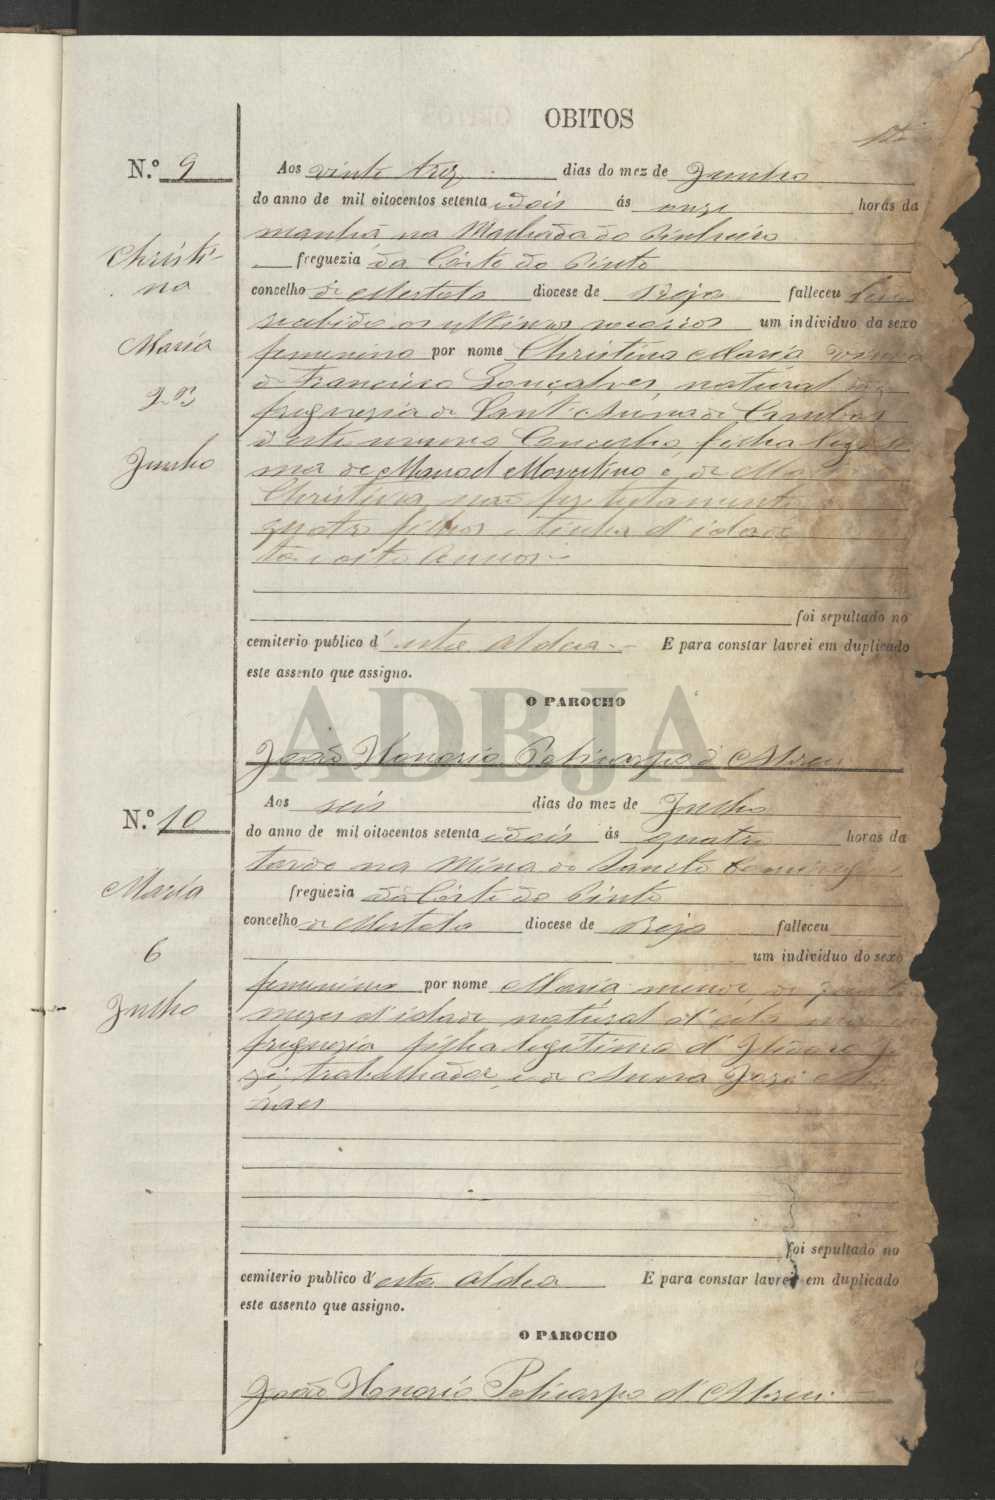 OBITOS
N.º 9
Christi-
na
Maria
23
Junho
Aos vinte trez dias do mez de Junho
do anno de mil oitocentos setenta e dois ás onze horas da
manhã na Machada do Pinheiro
freguezia da Córte do Pinto
concelho de Mertola diocese de Beja falleceu
recebido os ultimos socorros um individuo da sexo
femenino por nome Christina Maria viuva
de Francisco Gonçalves, natural da
freguezia de Sant'Anna de Cambas
d'este mesmo Concelho, filha legiti
ma de Manoel Marcelino e de Ma
Christina, não fez testamento
quatro filhos e tinha d'idade
ta e oito annos
foi sepultado no
cemiterio publico d'esta aldea E para constar lavrei em duplicado
este assento que assigno.
O PAROCHO
João Honorio Policarpo d'Abreu
ADBJA
N.º 10
Maria
6
Julho
Aos seis dias do mez de Julho
do anno de mil oitocentos setenta e dois ás quatro horas da
tarde na Mina de Sancto Domingos
freguezia da Córte do Pinto
concelho de Mertola diocese de Beja falleceu
um individuo do sexo
femenino por nome Maria menor de
mezes d'idade natural d'esta
freguezia filha legitima d'
trabalhador e de Anna José
foi sepultado no
cemiterio publico d'esta aldea E para constar lavrei em duplicado
este assento que assigno.
O PAROCHO
João Honorio Policarpo d'Abreu